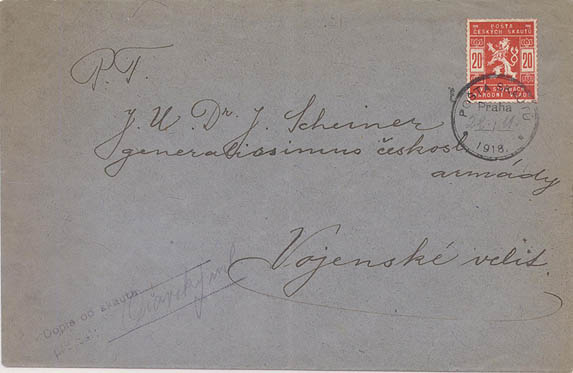 POŠTA
ČESKÝCH SKAUTŮ
20 20
VE SLUŽBÁCH
NÁRODNÍ VLÁDY
Praha
1918.
P. T.
J. U. Dr. J. Scheiner
generalissimus českosl.
armády
Vojenské velit.
Dopis od skauta